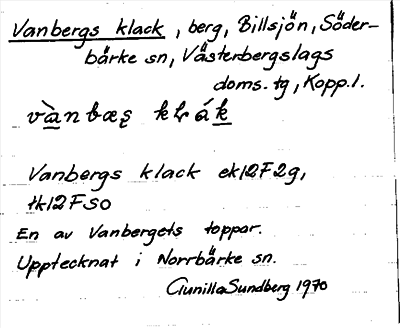 Vanbergs klack, berg, Billsjön, Söder-
bärke sn, Västerbergslags
doms. tg, Kopp. l.
Vanbergs klack ek12F2g,
tk12F SO
En av Vanbergets toppar.
Upptecknat i Norrbärke sn.
Gunilla Sundberg 1970